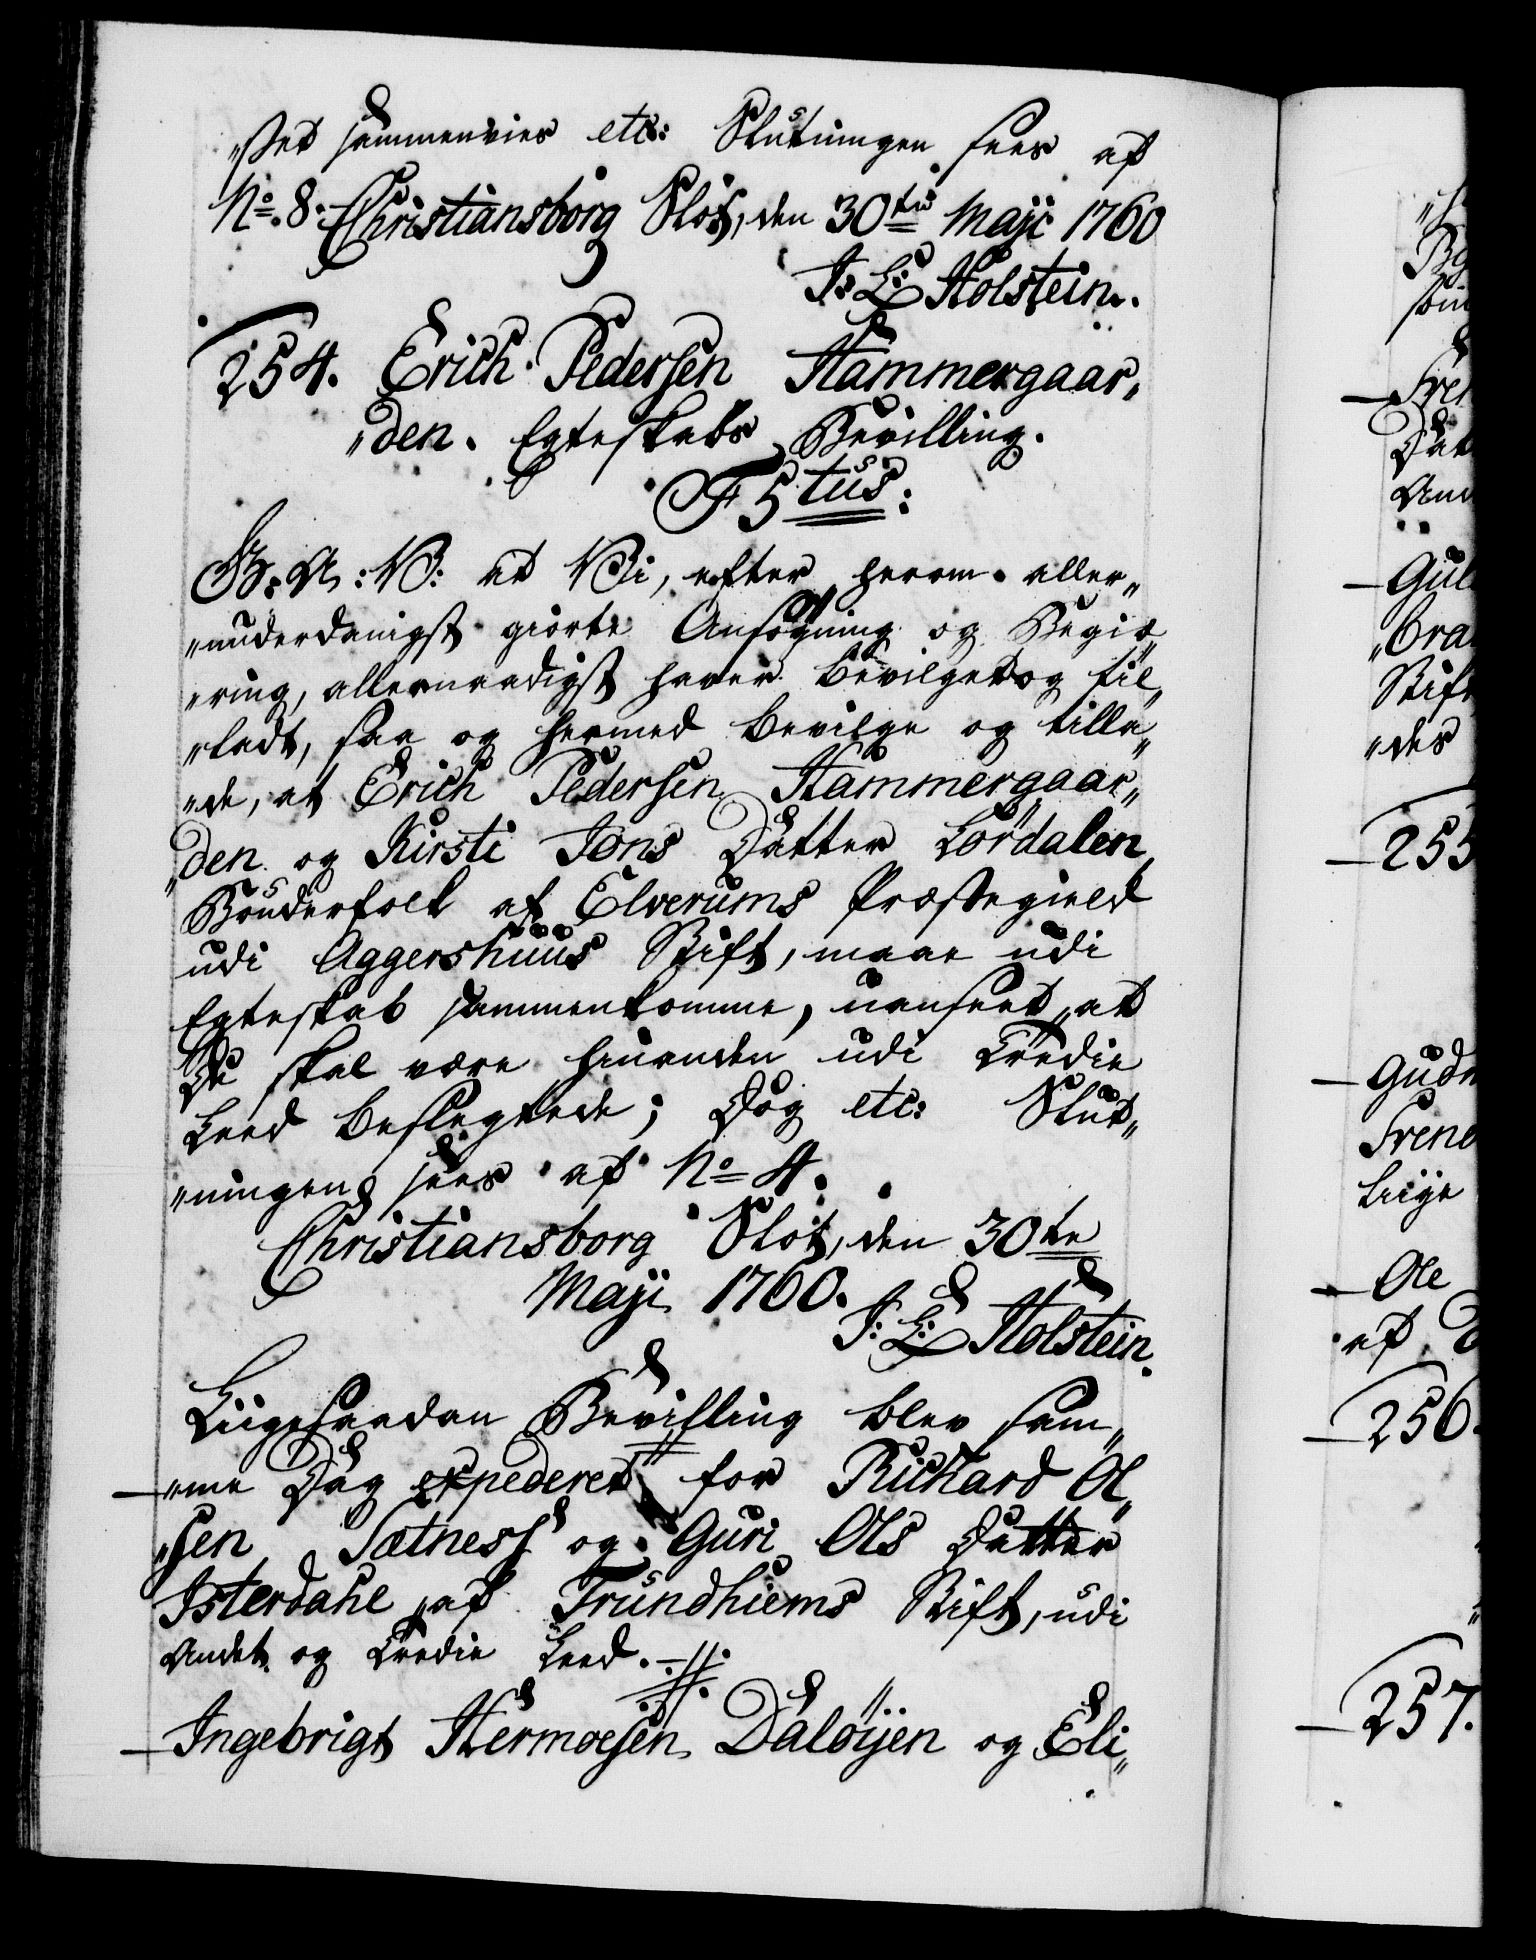 „stet sammenvies etc: Slutningen sees af
No. 8. Christiansborg Slot, den 30te Maji 1760
J: L: Holstein.
254. Erich Pedersen Hammergaar„
„den. Egteskabs Bevilling.
F 5tus:
G. A: V: at Vi, efter herom aller„
„underdanigst giorte Ansøgning og Begiæ„
„ring, allernaadigst haver bevilget og til„
„ladt, saa og hermed bevilge og tilla„
„de, at Erich Pedersen Hammergaar„
„den og Kirsti Jons Datter Lørdalen,
Bønderfolk af Elverums Præstegield
udi Aggershuus Stift, maae udi
Egteskab sammenkomme, uanseet, at
De skal være hinanden udi Tredie
Leed beslegtede; Dog etc: Slut„
„ningen sees af No 4.
Christiansborg Slot, den 30te
Maji 1760.
J: L: Holstein.
Liigesaadan Bevilling blev sam„
„me Dag expederet for Richard Ol„
„sen Sætness og Guri Ols Datter
Isterdahl, af Trundhiems Stift, udi
Andet og Tredie Leed.
Ingebrigt Hermoesen Daløijen og Eli„
255
256.
257.
Ole
af